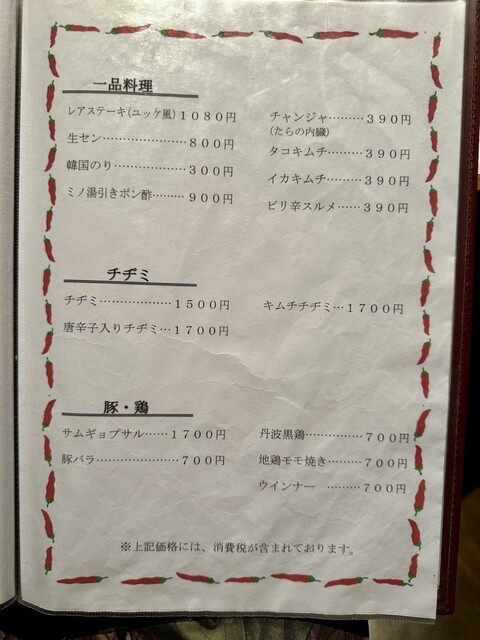 一品料理
レアステーキ(ユッケ風)１０８０円
生セン…………………８００円
韓国のり………………３００円
ミノ湯引きポン酢………９００円
チャンジャ………３９０円
(たらの内臓)
タコキムチ………３９０円
イカキムチ………３９０円
ピリ辛スルメ……３９０円
チヂミ
チヂミ………………１５００円
唐辛子入りチヂミ…１７００円
キムチチヂミ…１７００円
豚・鶏
サムギョプサル……１７００円
豚バラ…………………７００円
丹波黒鶏…………７００円
地鶏モモ焼き……７００円
ウインナー ………７００円
※上記価格には、消費税が含まれております。